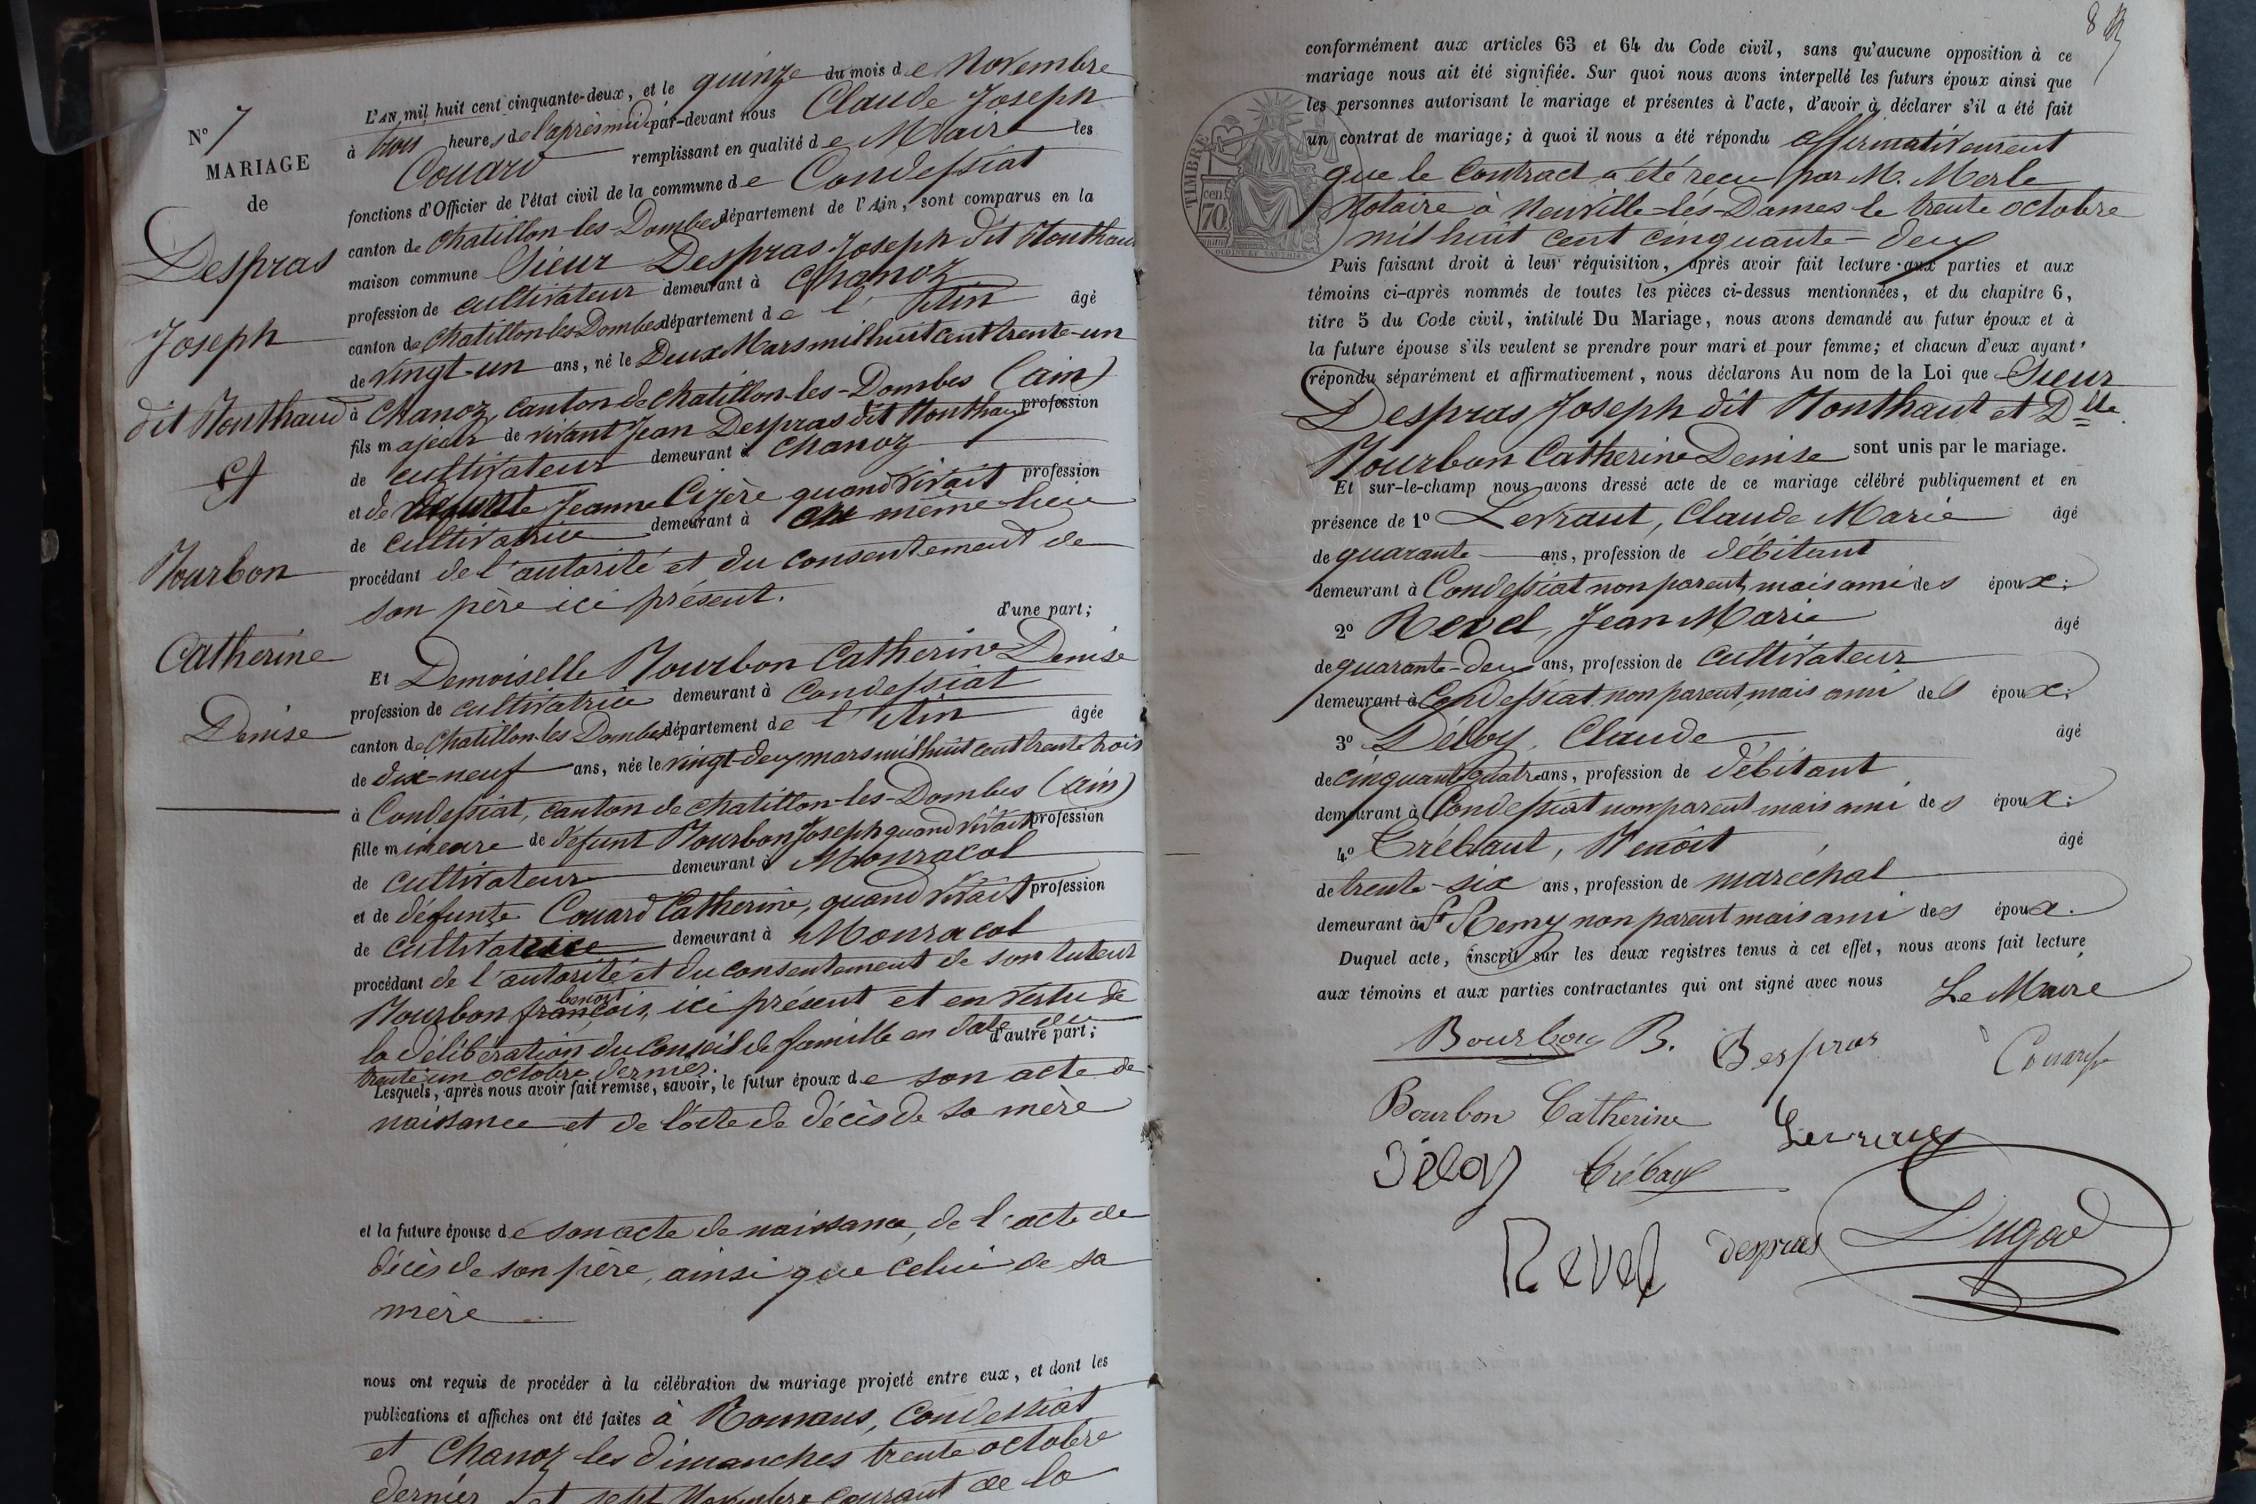 N° 7
MARIAGE
de
Despras
Joseph
dit Monthaud
et
Bourbon
Catherine
Denise
L'AN mil huit cent cinquante-deux, et le quinze du mois de Novembre
à trois heures de l'après midi par-devant nous Claude Joseph
Couard remplissant en qualité de Maire les
fonctions d'Officier de l'état civil de la commune de Condeſsiat
canton de Chatillon-les-Dombes département de l'Ain, sont comparus en la
maison commune Sieur Despras Joseph dit Monthaud
profession de cultivateur demeurant à Chanoz
canton de Chatillon les Dombes département de l'Ain âgé
de vingt-un ans, né le Deux Mars mil huit cent trente-un
à Chanoz, canton de Chatillon-les-Dombes (ain)
fils majeur de vivant Jean Despras dit Monthaud profession
de cultivateur demeurant à Chanoz
et de défunte Jeanne Cizère quand vivait profession
de cultivatrice demeurant à au même lieu
procédant de l'autorité et du consentement de
son père ici présent.
d'une part;
Et Demoiselle Bourbon Catherine Denise
profession de cultivatrice demeurant à Condeſsiat
canton de Chatillon-les-Dombes département de l'Ain âgée
de dix-neuf ans, née le vingt-deux mars mil huit cent trente trois
à Condeſsiat, canton de chatillon-les-Dombes (ain)
fille mineure de défunt Bourbon Joseph quand vivait profession
de cultivateur demeurant à Monracol
et de défunte Couard Catherine, quand vivait profession
de cultivatrice demeurant à Monracol
procédant de l'autorité et du consentement de son tuteur
benoit
Bourbon françois, ici présent et en vertu de
la délibération du Conseil de famille en date du
d'autre part;
trente un octobre dernier.
Lesquels, après nous avoir fait remise, savoir, le futur époux de son acte de
naissance et de l'acte de décès de sa mère
et la future épouse de son acte de naissance, de l'acte de
décès de son père, ainsi que celui de sa
mère
nous ont requis de procéder à la célébration du mariage projeté entre eux, et dont les
publications et affiches ont été faites à Romans, Condessiat
et Chanoz les dimanches trente octobre
dernier et sept Novembre courant de la
8
conformément aux articles 63 et 64 du Code civil, sans qu'aucune opposition à ce
mariage nous ait été signifiée. Sur quoi nous avons interpellé les futurs époux ainsi que
les personnes autorisant le mariage et présentes à l'acte, d'avoir à déclarer s'il a été fait
un contrat de mariage; à quoi il nous a été répondu affirmativement
que le Contract a été recu par M. Merle
Notaire à Neuville-lés-Dames le trente octobre
mil huit cent cinquante-deux
TIMBRE
70 cen
Puis faisant droit à leur réquisition, après avoir fait lecture aux parties et aux
témoins ci-après nommés de toutes les pièces ci-dessus mentionnées, et du chapitre 6,
titre 5 du Code civil, intitulé Du Mariage, nous avons demandé au futur époux et à
la future épouse s'ils veulent se prendre pour mari et pour femme; et chacun d'eux ayant
répondu séparément et affirmativement, nous déclarons Au nom de la Loi que Sieur
Despras Joseph dit Monthaut et Dlle
Bourbon Catherine Denise sont unis par le mariage.
Et sur-le-champ nous avons dressé acte de ce mariage célébré publiquement et en
présence de 1° Levraut, Claude Marie âgé
de quarante ans, profession de débitant
demeurant à Condeſsiat non parent, mais ami des époux;
2° Revel, Jean Marie âgé
de quarante-deux ans, profession de cultivateur
demeurant à Condeſsiat non parent, mais ami des époux;
3° Déloy, Claude âgé
de cinquante quatre ans, profession de débitant
demeurant à Condeſsiat non parent mais ami des époux;
4° Trébaut, Benoît âgé
de trente-six ans, profession de maréchal
demeurant à St Remy non parent mais ami des époux.
Duquel acte, inscrit sur les deux registres tenus à cet effet, nous avons fait lecture
aux témoins et aux parties contractantes qui ont signé avec nous
Le Maire
Bourbon B. Despras Couard
Bourbon Catherine Levraut
Déloy Trébaut
Revel despras Dugad